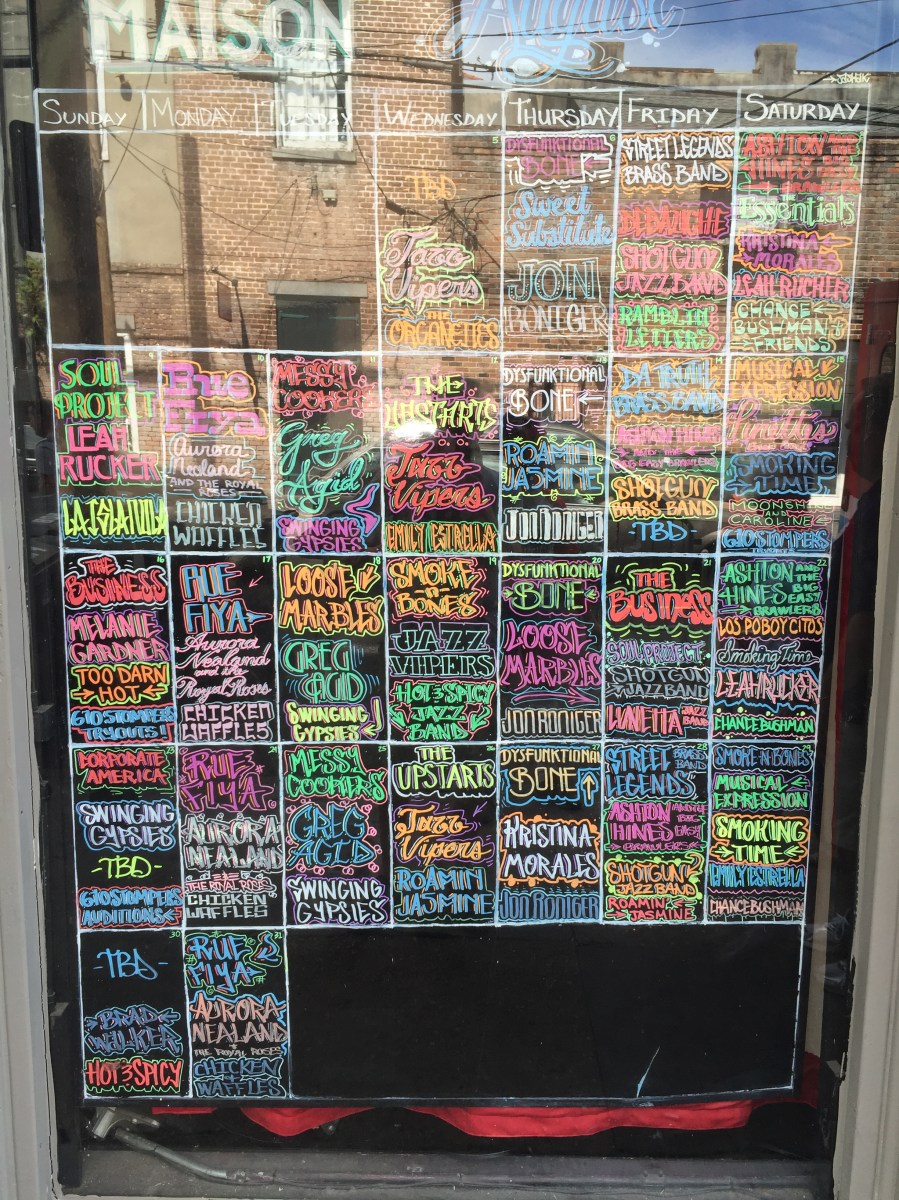 MAISON
August
SUNDAY
MONDAY
TUESDAY
WEDNESDAY
THURSDAY
FRIDAY
SATURDAY
5
TBD
Jazz
Vipers
THE
ORGANETTES
6
DYSFUNKTIONAL
BONE
Sweet
Substitute
JON
RONIGER
STREET LEGENDS
BRASS BAND
DEBAUCHE
SHOTGUN
JAZZ BAND
RAMBLIN'
LETTERS
ASHTON AND THE
HINES BIG
EASY
BRAWLERS
THE
Essentials
KRISTINA
MORALES
LEAH RUCKER
CHANCE
BUSHMAN &
FRIENDS
9
SOUL
PROJECT
LEAH
RUCKER
LA ISLANUDA
10
Rue
Fiya
Aurora
Nealand
AND THE ROYAL
ROSES
CHICKEN
WAFFLES
11
MESSY
COOKERS
Greg
Agid
SWINGING
GYPSIES
12
THE
UPSTARTS
Jazz
Vipers
EMILY ESTRELLA
13
DYSFUNKTIONAL
BONE
ROAMIN
JASMINE
JON RONIGER
14
DA TRUTH
BRASS BAND
ASHTON HINES
AND THE
BIG EASY BRAWLERS
SHOTGUN
BRASS BAND
-TBD-
15
MUSICAL
EXPRESSION
SMOKING
TIME
MOONSHINE
AND
CAROLINE
GIOSTOMPERS
16
THE
BUSINESS
MELANIE
GARDNER
TOO DARN
HOT
GIOSTOMPERS
TRYOUTS!
17
RUE
FIYA
Aurora
Nealand
and the
Royal Roses
CHICKEN
WAFFLES
18
LOOSE
MARBLES
GREG
AGID
SWINGING
GYPSIES
19
SMOKE
-N-
BONES
JAZZ
VIPERS
HOT & SPICY
JAZZ
BAND
20
DYSFUNKTIONAL
BONE
LOOSE
MARBLES
JON RONIGER
21
THE
BUSINESS
SOUL PROJECT
SHOTGUN
JAZZ BAND
LUNETTA JAZZ
BAND
22
ASHTON AND
THE
HINES BIG
EASY
BRAWLERS
LOS POBOYCITOS
Smoking Time
LEAH RUCKER
CHANCE BUSHMAN
23
CORPORATE
AMERICA
SWINGING
GYPSIES
-TBD-
GIOSTOMPERS
AUDITIONS
24
RUE
FIYA
AURORA
NEALAND
& THE ROYAL ROSES
CHICKEN
WAFFLES
25
MESSY
COOKERS
GREG
AGID
SWINGING
GYPSIES
26
THE
UPSTARTS
Jazz
Vipers
ROAMIN
JASMINE
27
DYSFUNKTIONAL
BONE
KRISTINA
MORALES
JON RONIGER
28
STREET BRASS
BAND
LEGENDS
ASHTON AND THE
HINES BIG
EASY
BRAWLERS
SHOTGUN
JAZZ BAND
ROAMIN
JASMINE
29
SMOKE-N-BONES
MUSICAL
EXPRESSION
SMOKING
TIME
EMILY ESTRELLA
CHANCE BUSHMAN
30
-TBD-
BRAD
WALKER
HOT & SPICY
31
RUE
FIYA
AURORA
NEALAND
& THE ROYAL ROSES
CHICKEN
+
WAFFLES